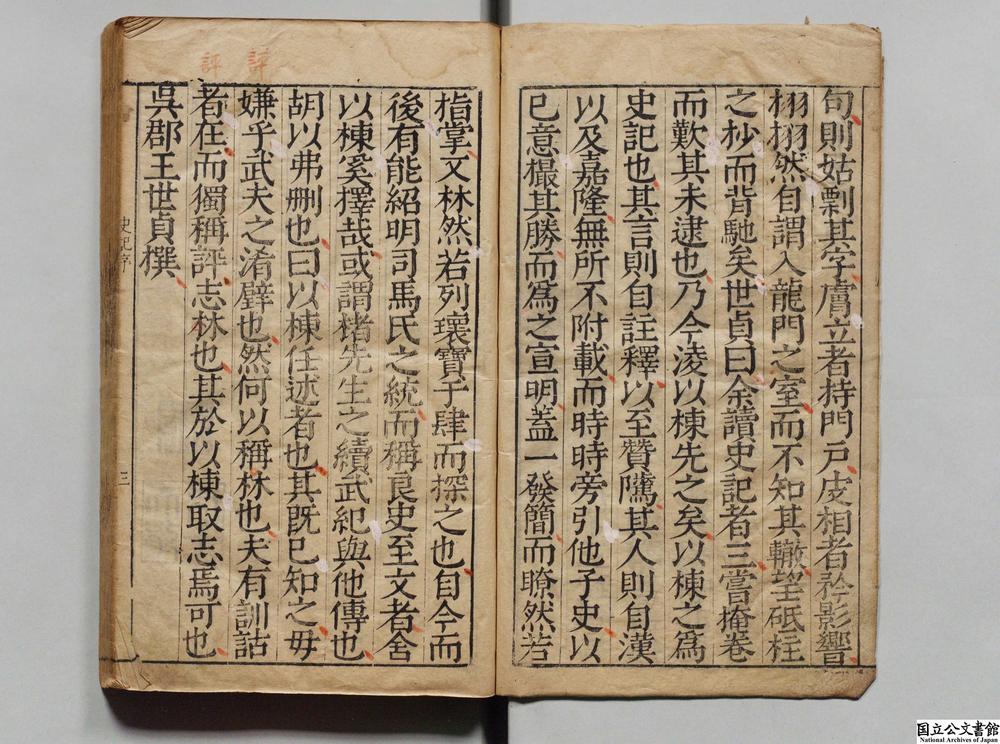 句則姑剽其字膚立者持門戸皮相者矜影響
栩栩然自謂入龍門之室而不知其轍望砥柱
之杪而背馳矣世貞曰余讀史記者三嘗掩卷
而歎其未逮也乃今淩以棟先之矣以棟之爲
史記也其言則自註釋以至贊隲其人則自漢
以及嘉隆無所不附載而時時旁引他子史以
已意撮其勝而爲之宣明蓋一發簡而瞭然若
指掌又林然若列瓌寶于肆而探之也自今而
後有能紹明司馬氏之統而稱良史至文者舍
以棟奚擇哉或謂楮先生之續武紀與他傳也
胡以弗删也曰以棟任述者也其旣已知之毋
嫌乎武夫之淆璧也然何以稱林也夫有訓詁
者在而獨稱評志林也其於以棟取志焉可也
吳郡王世貞撰
評
評
史記序
三
国立公文書館
National Archives of Japan